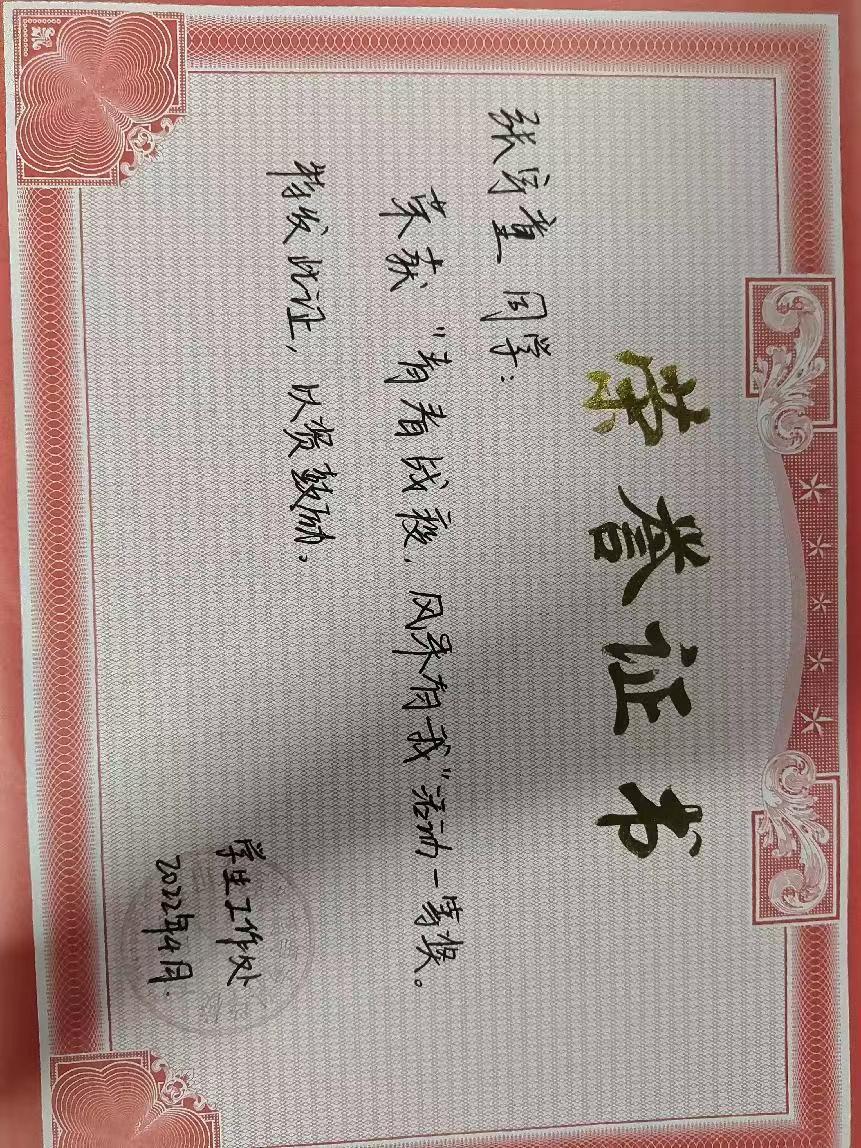 荣誉证书
张宇童 同学：
荣获“青春战疫，风采有我”活动一等奖。
特发此证，以资鼓励。
学生工作处
2022年4月.